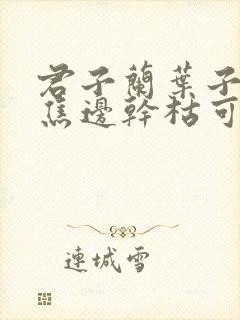 君子蘭葉子
焦邊幹枯可
連城雪